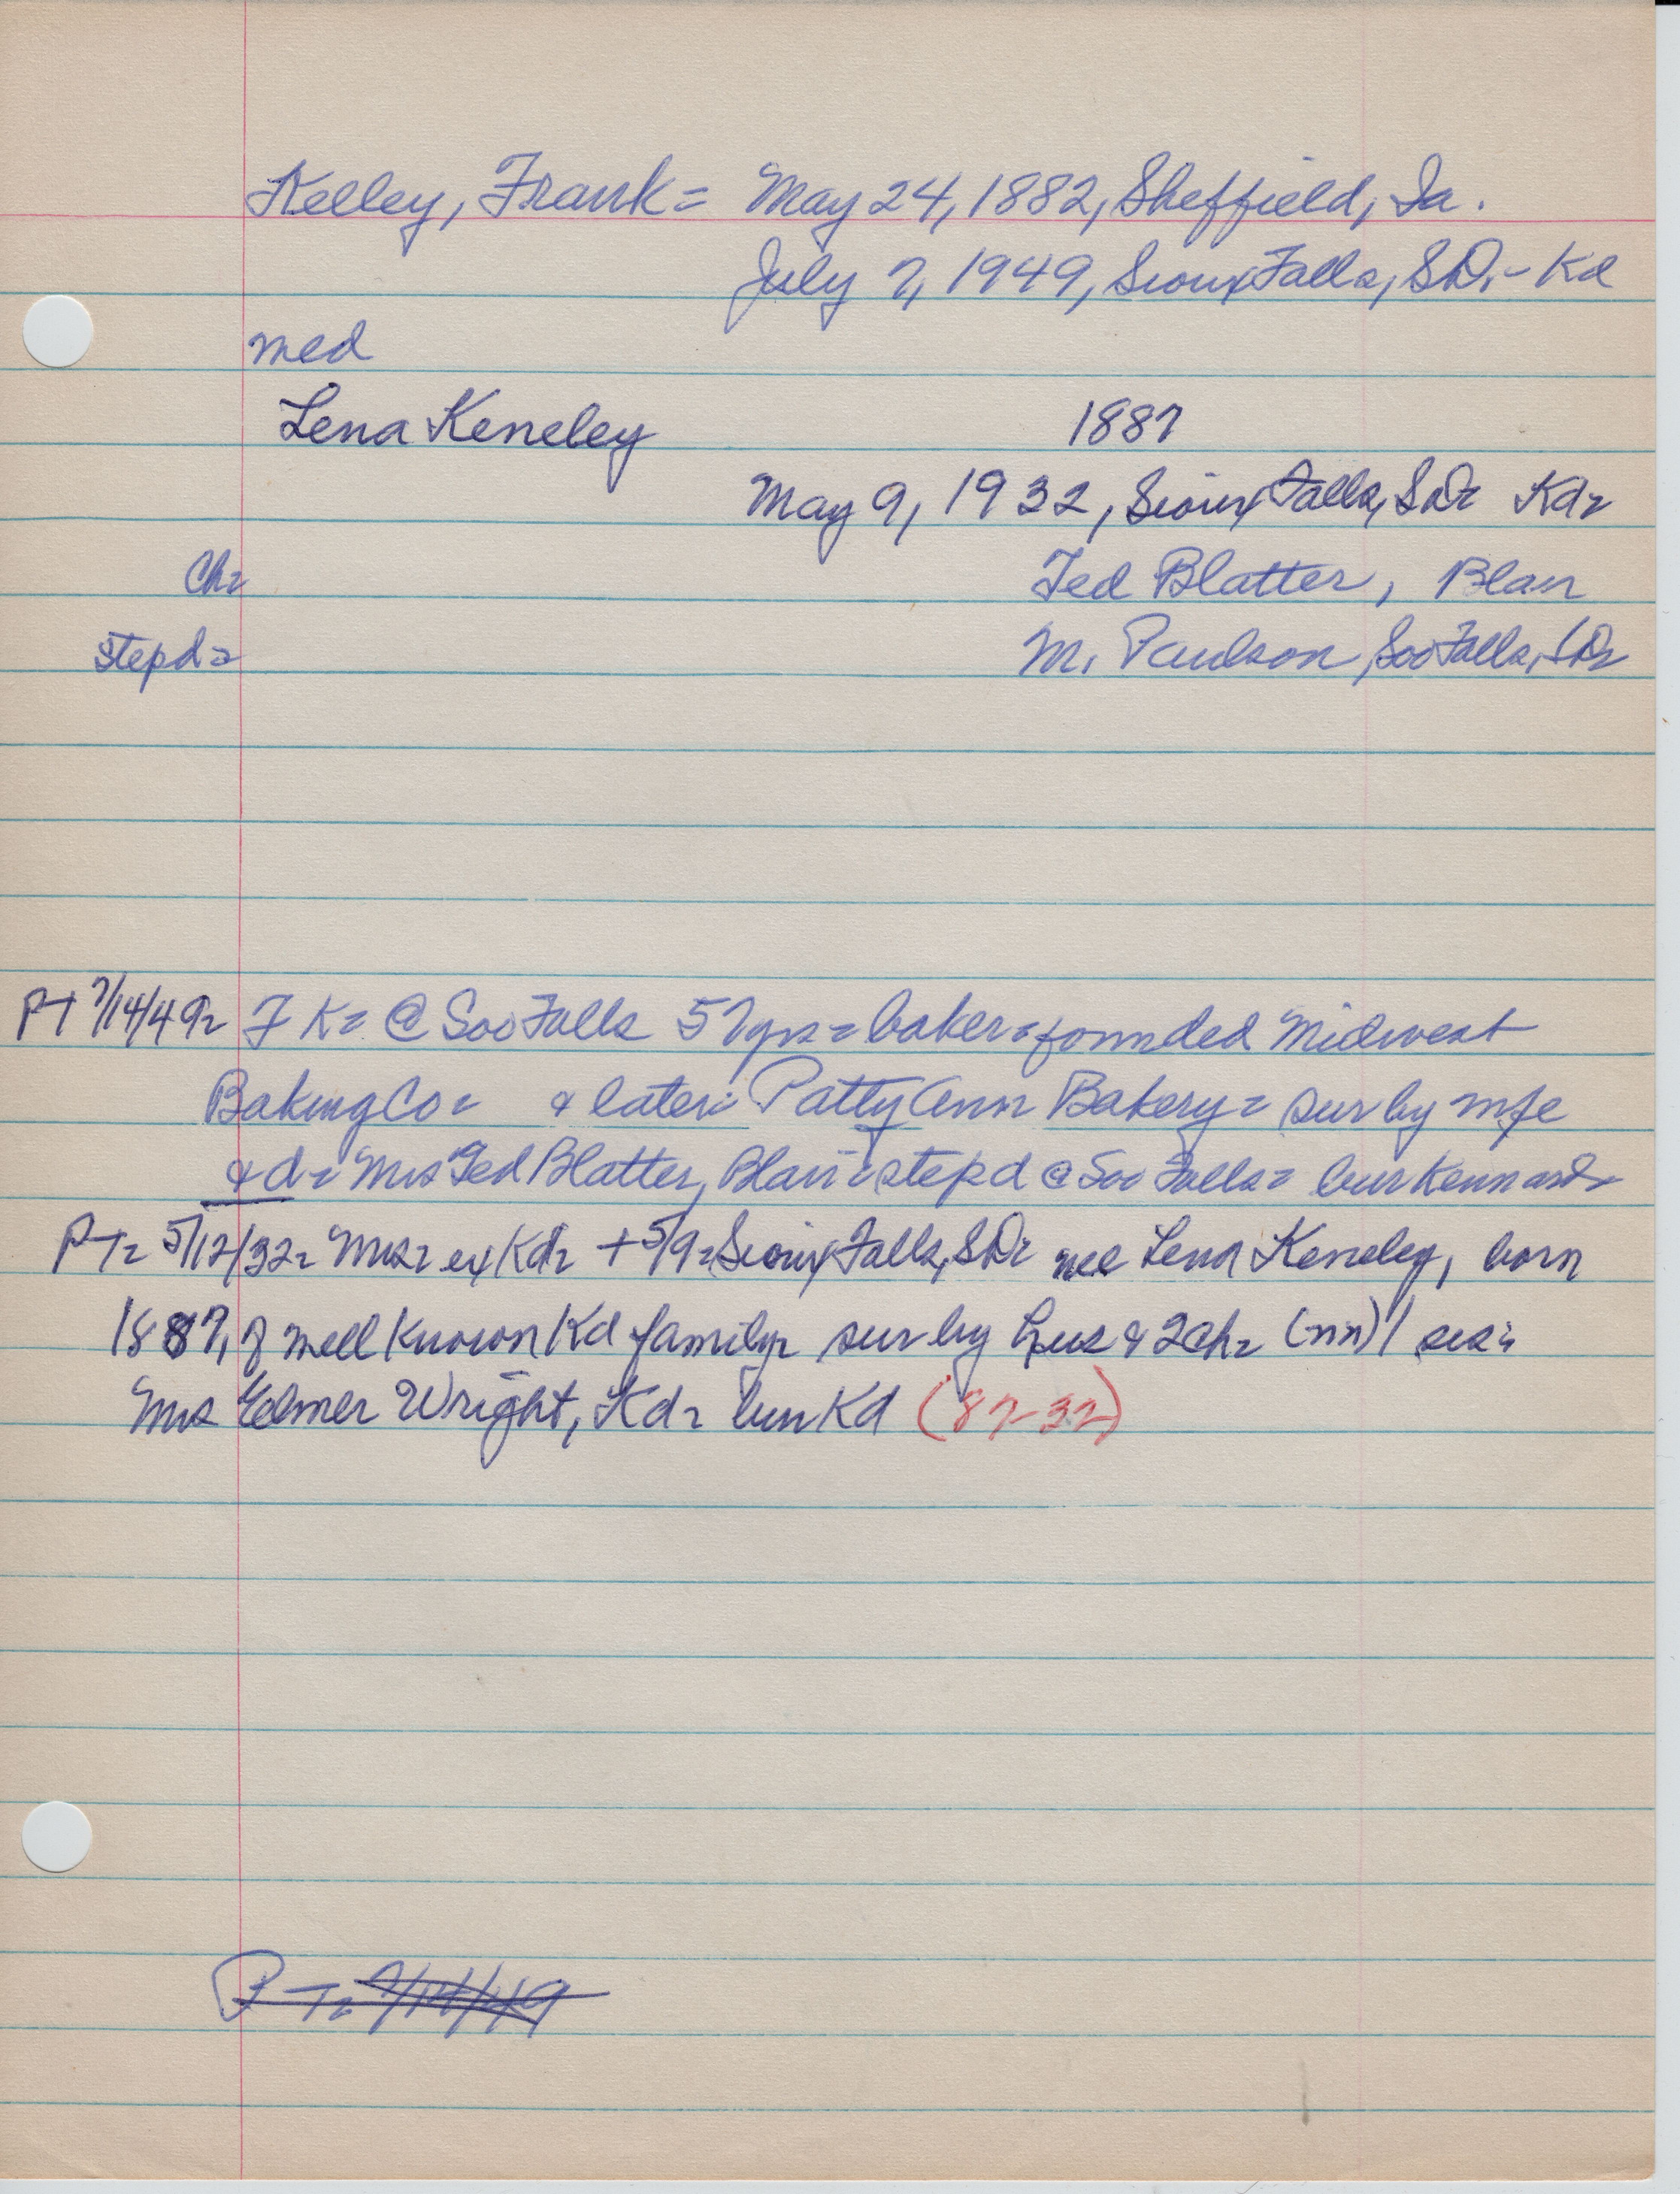 Kelley, Frank = May 24, 1882, Sheffield, Ia.
July 7, 1949, Sioux Falls, SD. - Kd
med
Lena Keneley 1887
May 9, 1932, Sioux Falls, SD= Kd=
Ch= Ted Blatter, Blair
stepd= M. Paulson, Soo Falls, SD=
PT 7/14/49= F K= @ Soo Falls 57 yrs = baker = founded Midwest
Baking Co= & later: Patty Ann Bakery = sur by wfe
& d= Mrs Ted Blatter, Blair = stepd @ Soo Falls = bur Kennard=
PT= 5/12/32= Mrs= ex Kd= + 5/9= Sioux Falls, SD= nee Lena Keneley, born
1887, of well known Kd family= sur by hus & 2 ch= (nn) 1 sis:
Mrs Elmer Wright, Kd= bur Kd (87-32)
PT= 7/14/49